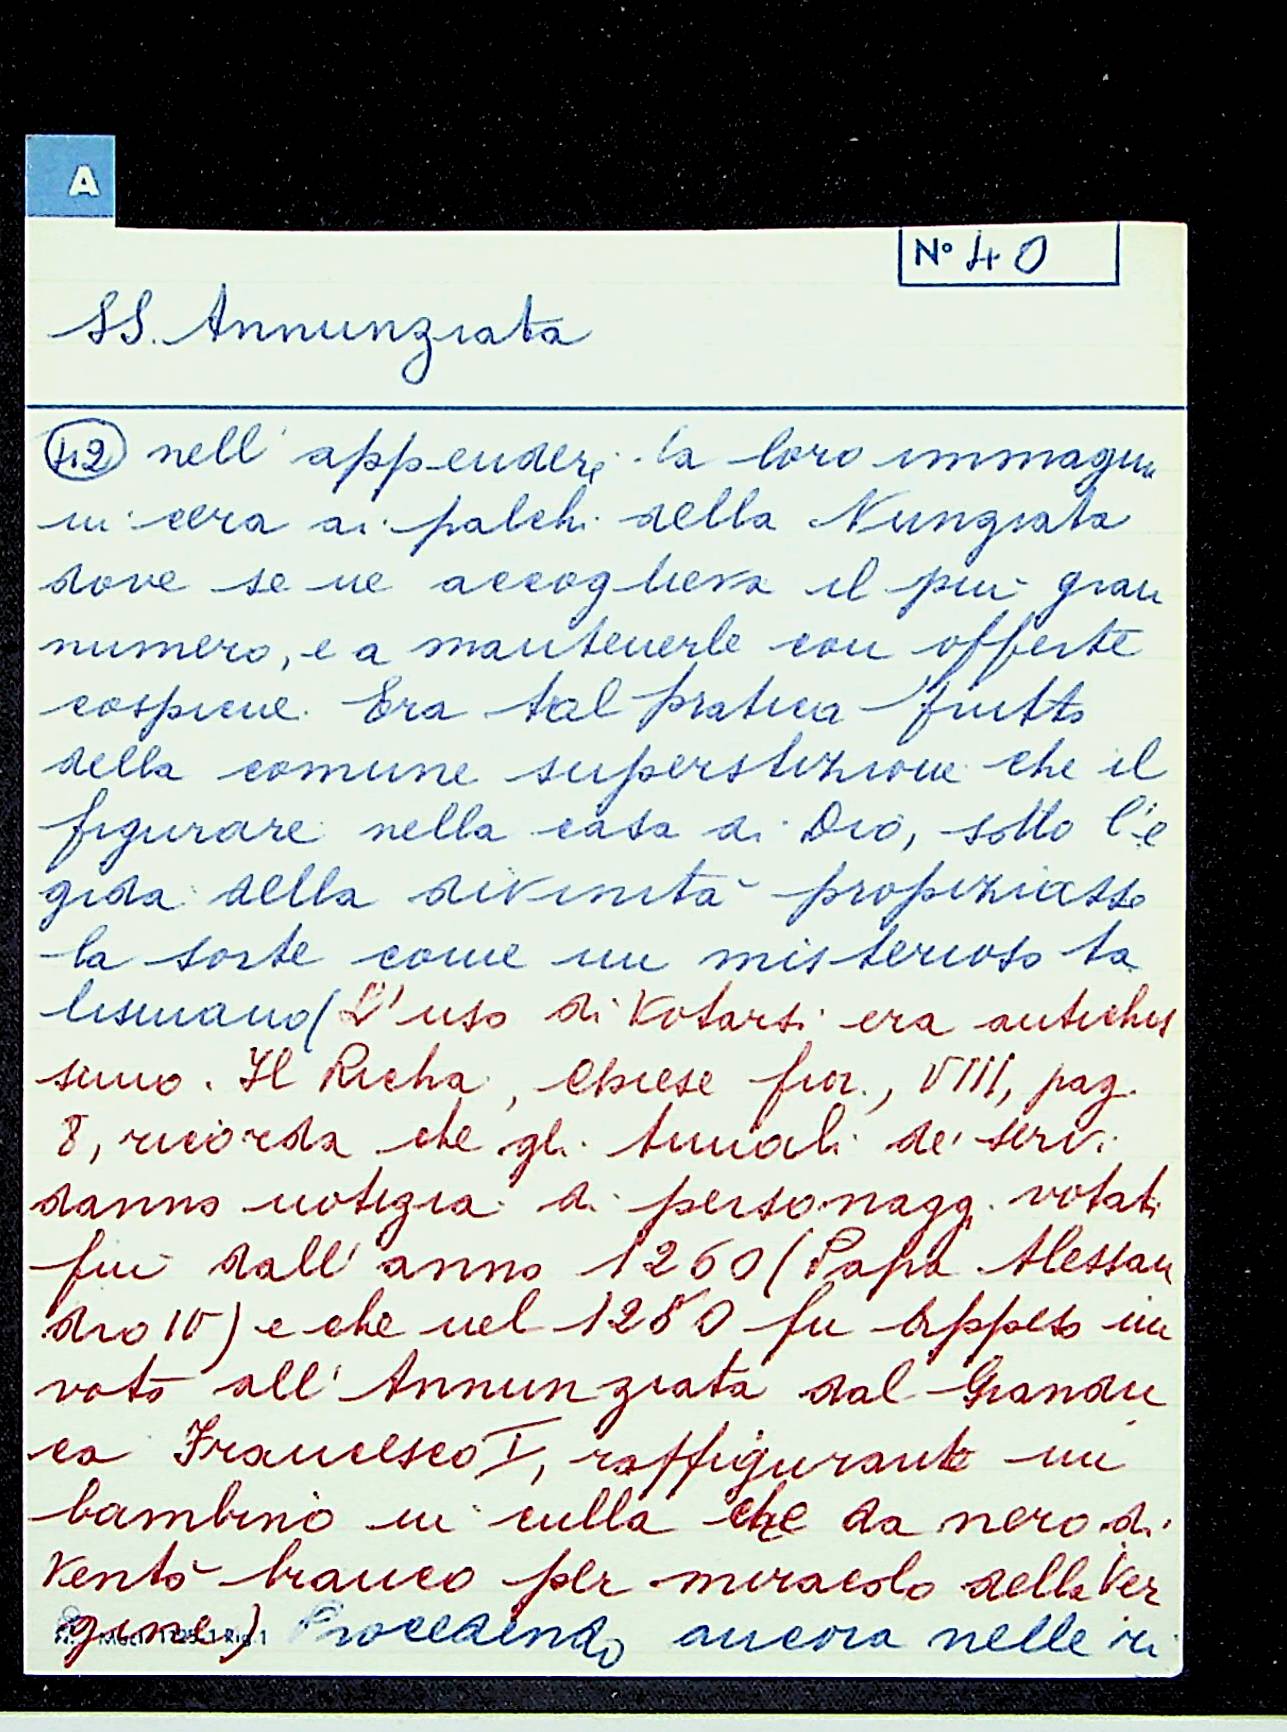 A
N° 40
SS. Annunziata
42 nell'appendere la loro immagine
in cera ai palchi della Nunziata
dove se ne accoglieva il più gran
numero, e a mantenerle con offerte
cospicue. Era tal pratica frutto
della comune superstizione che il
figurare nella casa di Dio, sotto l'e
gida della divinità propiziasse
la sorte come un misterioso ta
lismano (L'uso di votarsi era antichis
simo. Il Richa, Chiese fior., VIII, pag.
8, ricorda che gli annali de' servi
danno notizia di personaggi votati
fin dall'anno 1260 (Papa Alessan
dro IV) e che nel 1280 fu appeso un
voto all'Annunziata dal Grandu
ca Francesco I, raffigurante un
bambino in culla che da nero di
ventò bianco per miracolo della Ver
gine) Procedendo ancora nelle ri